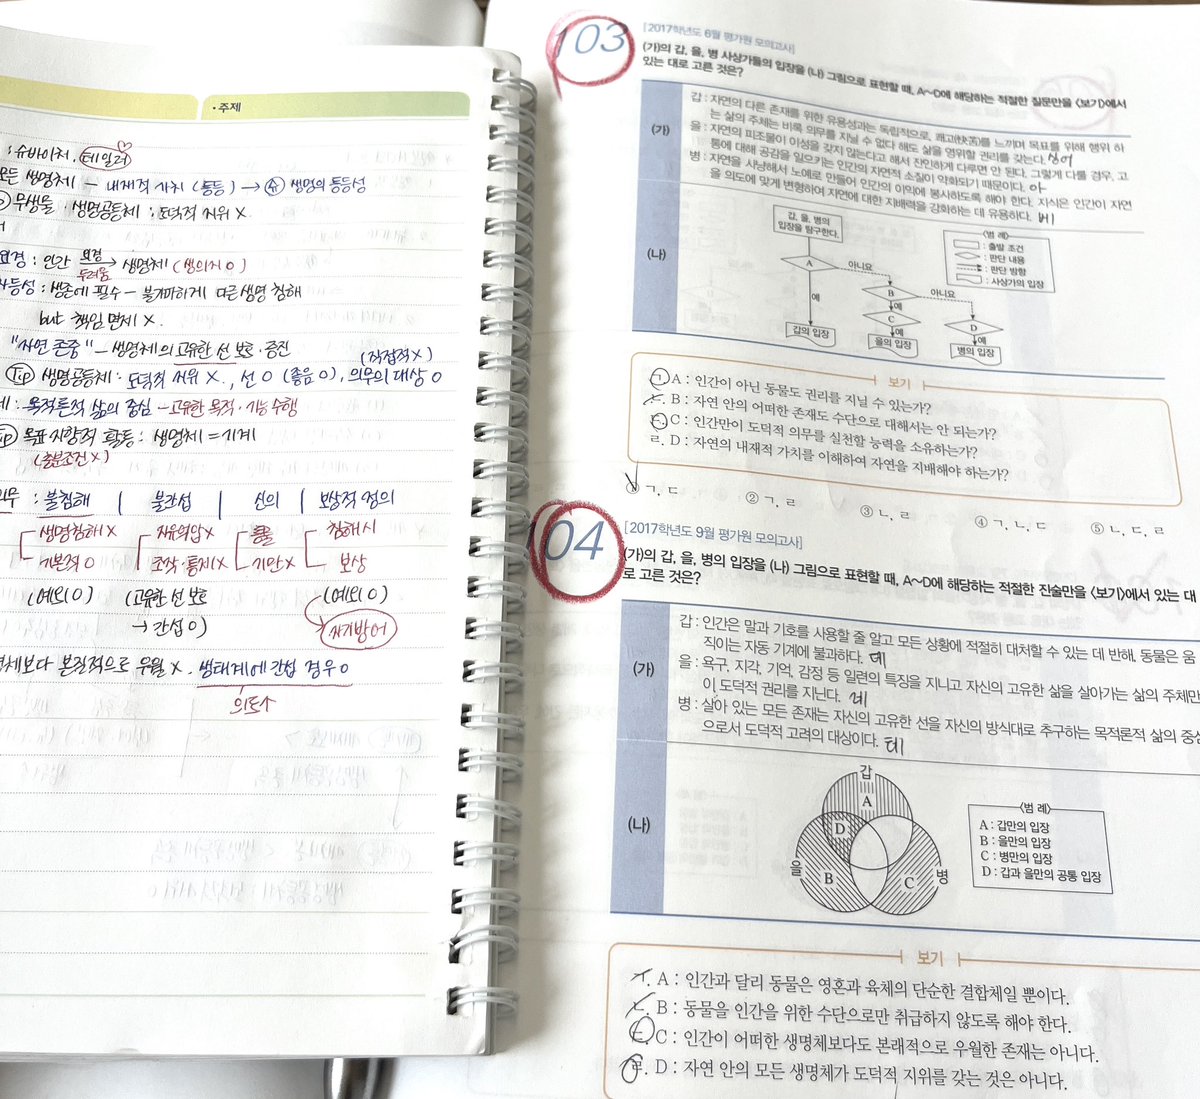 • 주제
: 슈바이처. 테일러
모든 생명체 – 내재적 가치 (동등) → 생명의 동등성
무생물 · 생명공동체 : 도덕적 지위 X.
외경 : 인간 외경 두려움 → 생명체 (생의지 O)
생존에 필수 – 불가피하게 다른 생명 침해
but 책임 면제 X.
"자연 존중" – 생명체의 고유한 선 보호 · 증진
(직접적 X)
Tip 생명공동체 : 도덕적 지위 X., 선 O (좋음 O), 의무의 대상 O
목적론적 삶의 중심 – 고유한 목적 · 기능 수행
목표 지향적 활동 : 생명체 = 기계
(충분조건 X)
의무 : 불침해 | 불간섭 | 신의 | 보상적 정의
생명침해 X 자유억압 X 침해 시
기본적 O 조작 · 통제 X 기만 X 보상
(예외 O) (고유한 선 보호 (예외 O)
→ 간섭 O) 자기방어
생명체보다 본질적으로 우월 X. 생태계에 간섭 경우 O
의도↑
103
[2017학년도 6월 평가원 모의고사]
(가)의 갑, 을, 병 사상가들의 입장을 (나) 그림으로 표현할 때, A~D에 해당하는 적절한 질문만을 <보기>에서
있는 대로 고른 것은?
(가)
갑 : 자연의 다른 존재를 위한 유용성과는 독립적으로, 쾌고(快苦)를 느끼며 목표를 위해 행위 하
는 삶의 주체는 비록 의무를 지닐 수 없다 해도 삶을 영위할 권리를 갖는다.
을 : 자연의 피조물이 이성을 갖지 않는다고 해서 잔인하게 다루면 안 된다. 그렇게 다룰 경우, 고
통에 대해 공감을 일으키는 인간의 자연적 소질이 약화되기 때문이다. 아
병 : 자연을 사냥해서 노예로 만들어 인간의 이익에 봉사하도록 해야 한다. 지식은 인간이 자연
을 의도에 맞게 변형하여 자연에 대한 지배력을 강화하는 데 유용하다. 베
(나)
갑, 을, 병의
입장을 탐구한다.
A
아니요
B
아니요
예
예
C
D
예
예
갑의 입장
을의 입장
병의 입장
<범 례>
: 출발 조건
: 판단 내용
: 판단 방향
: 사상가의 입장
보기
ㄱ. A : 인간이 아닌 동물도 권리를 지닐 수 있는가?
ㄴ. B : 자연 안의 어떠한 존재도 수단으로 대해서는 안 되는가?
ㄷ. C : 인간만이 도덕적 의무를 실천할 능력을 소유하는가?
ㄹ. D : 자연의 내재적 가치를 이해하여 자연을 지배해야 하는가?
① ㄱ, ㄷ ② ㄱ, ㄹ ③ ㄴ, ㄹ ④ ㄱ, ㄴ, ㄷ ⑤ ㄴ, ㄷ, ㄹ
104
[2017학년도 9월 평가원 모의고사]
(가)의 갑, 을, 병의 입장을 (나) 그림으로 표현할 때, A~D에 해당하는 적절한 진술만을 <보기>에서 있는 대
로 고른 것은?
(가)
갑 : 인간은 말과 기호를 사용할 줄 알고 모든 상황에 적절히 대처할 수 있는 데 반해, 동물은 움
직이는 자동 기계에 불과하다. 데
을 : 욕구, 지각, 기억, 감정 등 일련의 특징을 지니고 자신의 고유한 삶을 살아가는 삶의 주체만
이 도덕적 권리를 지닌다. 레
병 : 살아 있는 모든 존재는 자신의 고유한 선을 자신의 방식대로 추구하는 목적론적 삶의 중심
으로서 도덕적 고려의 대상이다. 테
(나)
갑
A
D
을
B
C
병
<범 례>
A : 갑만의 입장
B : 을만의 입장
C : 병만의 입장
D : 갑과 을만의 공통 입장
보기
ㄱ. A : 인간과 달리 동물은 영혼과 육체의 단순한 결합체일 뿐이다.
ㄴ. B : 동물을 인간을 위한 수단으로만 취급하지 않도록 해야 한다.
ㄷ. C : 인간이 어떠한 생명체보다도 본래적으로 우월한 존재는 아니다.
ㄹ. D : 자연 안의 모든 생명체가 도덕적 지위를 갖는 것은 아니다.